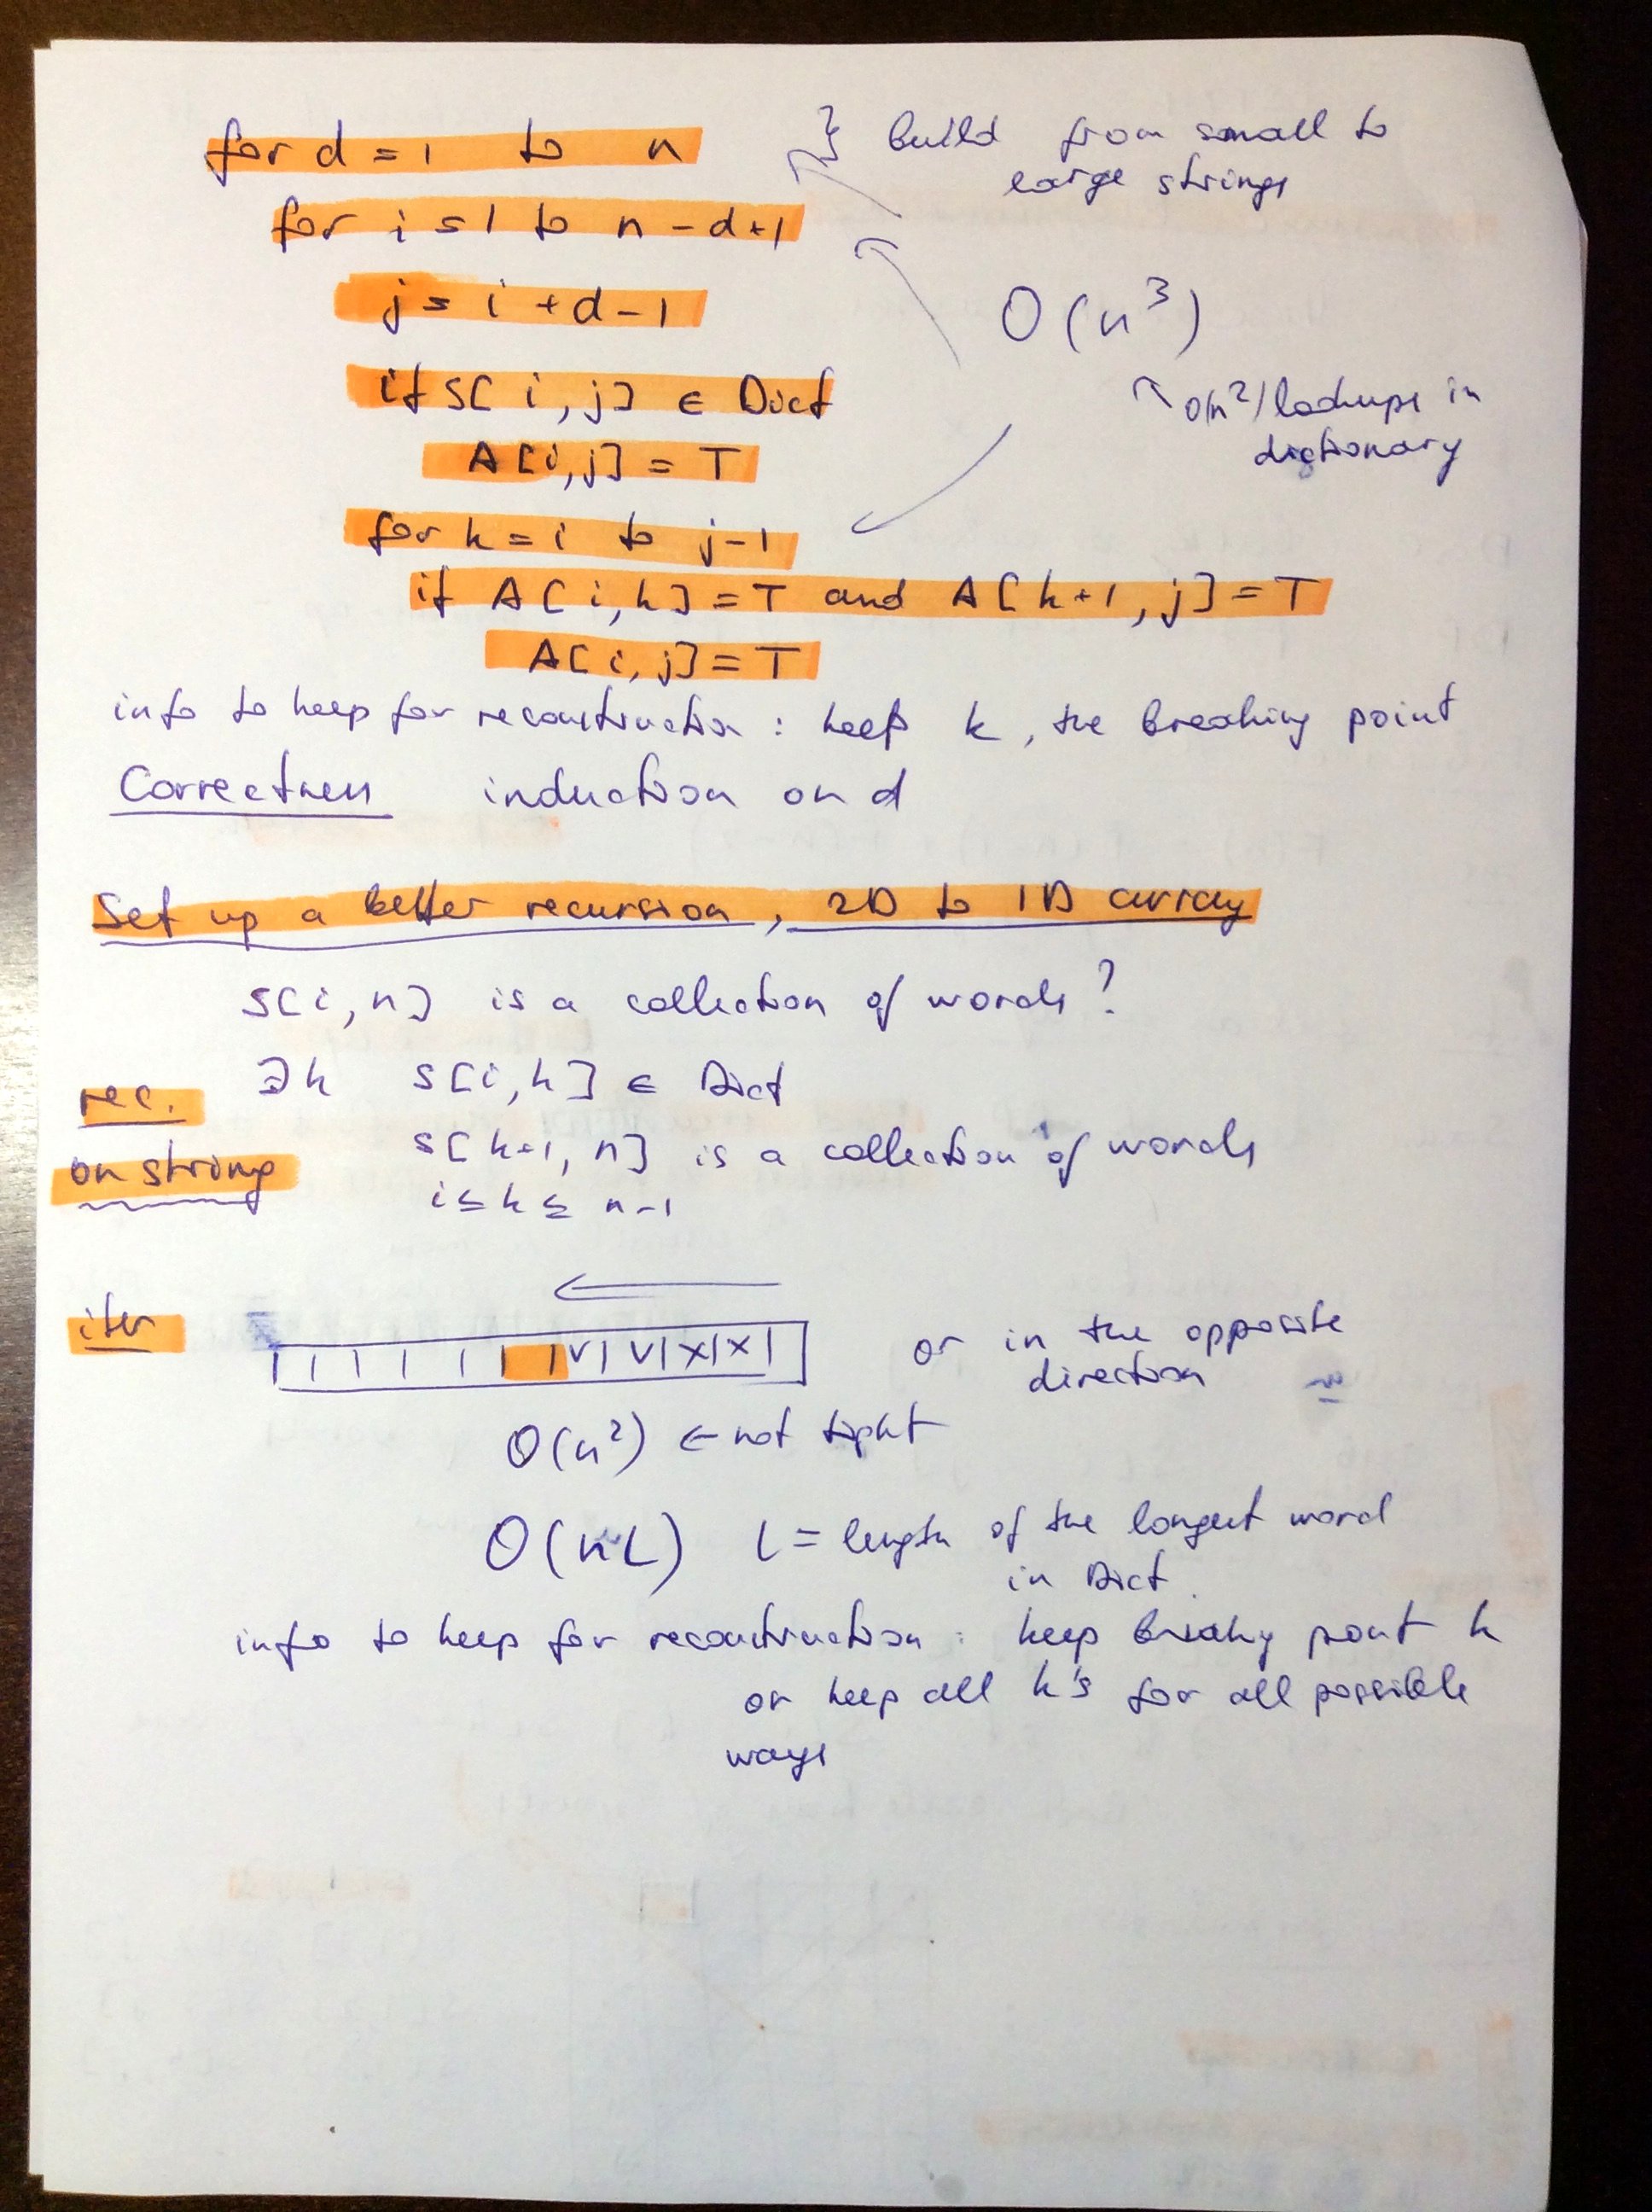 for d = 1 to n } build from small to
large strings
for i = 1 to n - d + 1
j = i + d - 1
O(n³)
if S[i, j] ∈ Dict
O(n²) lookups in
dictionary
A[i, j] = T
for k = i to j-1
if A[i, k] = T and A[k+1, j] = T
A[i, j] = T
info to keep for reconstruction : keep k, the breaking point
Correctness induction on d
Set up a better recursion, 2D to 1D array
S[i, n] is a collection of words?
rec. ∃k S[i, k] ∈ Dict
on string S[k+1, n] is a collection of words
i ≤ k ≤ n-1
iter
V V X X or in the opposite
direction
O(n²) ← not tight
O(nL) L = length of the longest word
in Dict.
info to keep for reconstruction : keep breaking point k
or keep all k's for all possible
ways